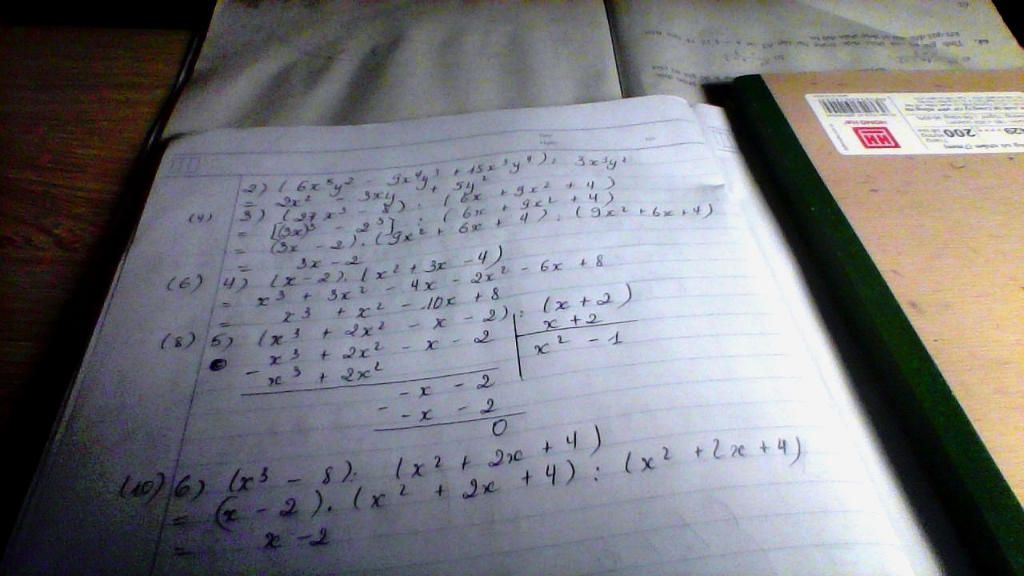 2) (6x⁵y² - 9x⁴y³ + 15x³y⁴) : 3x³y²
= 2x² - 3xy + 5y²
(4) 3) (27x³ - 8) : (6x + 9x² + 4)
= [(3x)³ - 2³] : (6x + 9x² + 4)
= (3x - 2) . (9x² + 6x + 4) : (9x² + 6x + 4)
= 3x - 2
(6) 4) (x - 2) . (x² + 3x - 4)
= x³ + 3x² - 4x - 2x² - 6x + 8
= x³ + x² - 10x + 8
(8) 5) (x³ + 2x² - x - 2) : (x + 2)
x³ + 2x² - x - 2 | x + 2
- x³ + 2x² | x² - 1
- x - 2
- - x - 2
0
(10) 6) (x³ - 8) : (x² + 2x + 4)
= (x - 2) . (x² + 2x + 4) : (x² + 2x + 4)
= x - 2
200